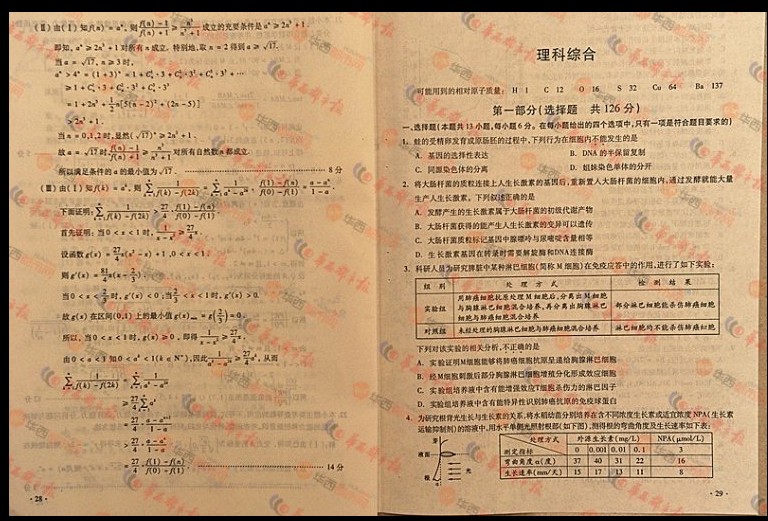 (Ⅱ)由(Ⅰ)知f(n)=aⁿ,则 f(n)-1/f(n)+1 ≥ n³/n³+1 成立的充要条件是aⁿ≥2n³+1.
即知,aⁿ≥2n³+1对所有n成立.特别地,取n=2得到a≥√17.
当a=√17,n≥3时,
aⁿ>4ⁿ=(1+3)ⁿ=1+C¹ₙ·3+C²ₙ·3²+C³ₙ·3³+⋯
≥1+C¹ₙ·3+C²ₙ·3²+C³ₙ·3³
=1+2n³+½n[5(n-2)²+(2n-5)]
>2n³+1.
当n=0,1,2时,显然(√17)ⁿ≥2n³+1.
故a=√17时 f(n)-1/f(n)+1 ≥ n³/n³+1 对所有自然数n都成立.
所以满足条件的a的最小值为√17. 8分
下面证明:
首先证明:当0<x<1时, 1/x-x² ≥ 27/4 x.
设函数g(x)=27/4 x(x²-x)+1,0<x<1.
则g'(x)=81/4 x(x-2/3).
当0<x<2/3时,g'(x)<0;当2/3<x<1时,g'(x)>0.
故g(x)在区间(0,1)上的最小值g(x)min=g(2/3)=0.
所以,当0<x<1时,g(x)≥0,即得 1/x-x² ≥ 27/4 x.
14分
·28·
理科综合
可能用到的相对原子质量: H 1 C 12 O 16 S 32 Cu 64 Ba 137
第一部分(选择题 共126分)
一、选择题(本题共13小题,每小题6分。在每小题给出的四个选项中,只有一项是符合题目要求的)
1. 蛙的受精卵发育成原肠胚的过程中,下列行为在细胞内不能发生的是
A. 基因的选择性表达 B. DNA的半保留复制
C. 同源染色体的分离 D. 姐妹染色单体的分开
2. 将大肠杆菌的质粒连接上人生长激素的基因后,重新置入大肠杆菌的细胞内,通过发酵就能大量
生产人生长激素。下列叙述正确的是
A. 发酵产生的生长激素属于大肠杆菌的初级代谢产物
B. 大肠杆菌获得的能产生人生长激素的变异可以遗传
C. 大肠杆菌质粒标记基因中腺嘌呤与尿嘧啶含量相等
D. 生长激素基因在转录时需要解旋酶和DNA连接酶
3. 科研人员为研究脾脏中某种淋巴细胞(简称M细胞)在免疫应答中的作用,进行了如下实验:
组别 处理方式 检测结果
实验组 用肺癌细胞抗原处理M细胞后,分离出M细胞
与胸腺淋巴细胞混合培养,再分离出胸腺淋巴
细胞与肺癌细胞混合培养 部分淋巴细胞能杀伤肺癌细胞
对照组 未经处理的胸腺淋巴细胞与肺癌细胞混合培养 淋巴细胞均不能杀伤肺癌细胞
下列对该实验的相关分析,不正确的是
A. 实验证明M细胞能够将肺癌细胞抗原呈递给胸腺淋巴细胞
B. 经M细胞刺激后部分胸腺淋巴细胞增殖分化形成效应细胞
C. 实验组培养液中含有能增强效应T细胞杀伤力的淋巴因子
D. 实验组培养液中含有能特异性识别肺癌抗原的免疫球蛋白
4. 为研究根背光生长与生长素的关系,将水稻幼苗分别培养在含不同浓度生长素或适宜浓度NPA(生长素
运输抑制剂)的溶液中,用水平单侧光照射根部(如下图),测得根的弯曲角度及生长速率如下表:
芽
液面
根
光
处理方式 外源生长素(mg/L) NPA(μmol/L)
测定指标 0 0.001 0.01 0.1 3
弯曲角度α(度) 37 40 31 22 16
生长速率(mm/天) 15 17 13 11 8
·29·